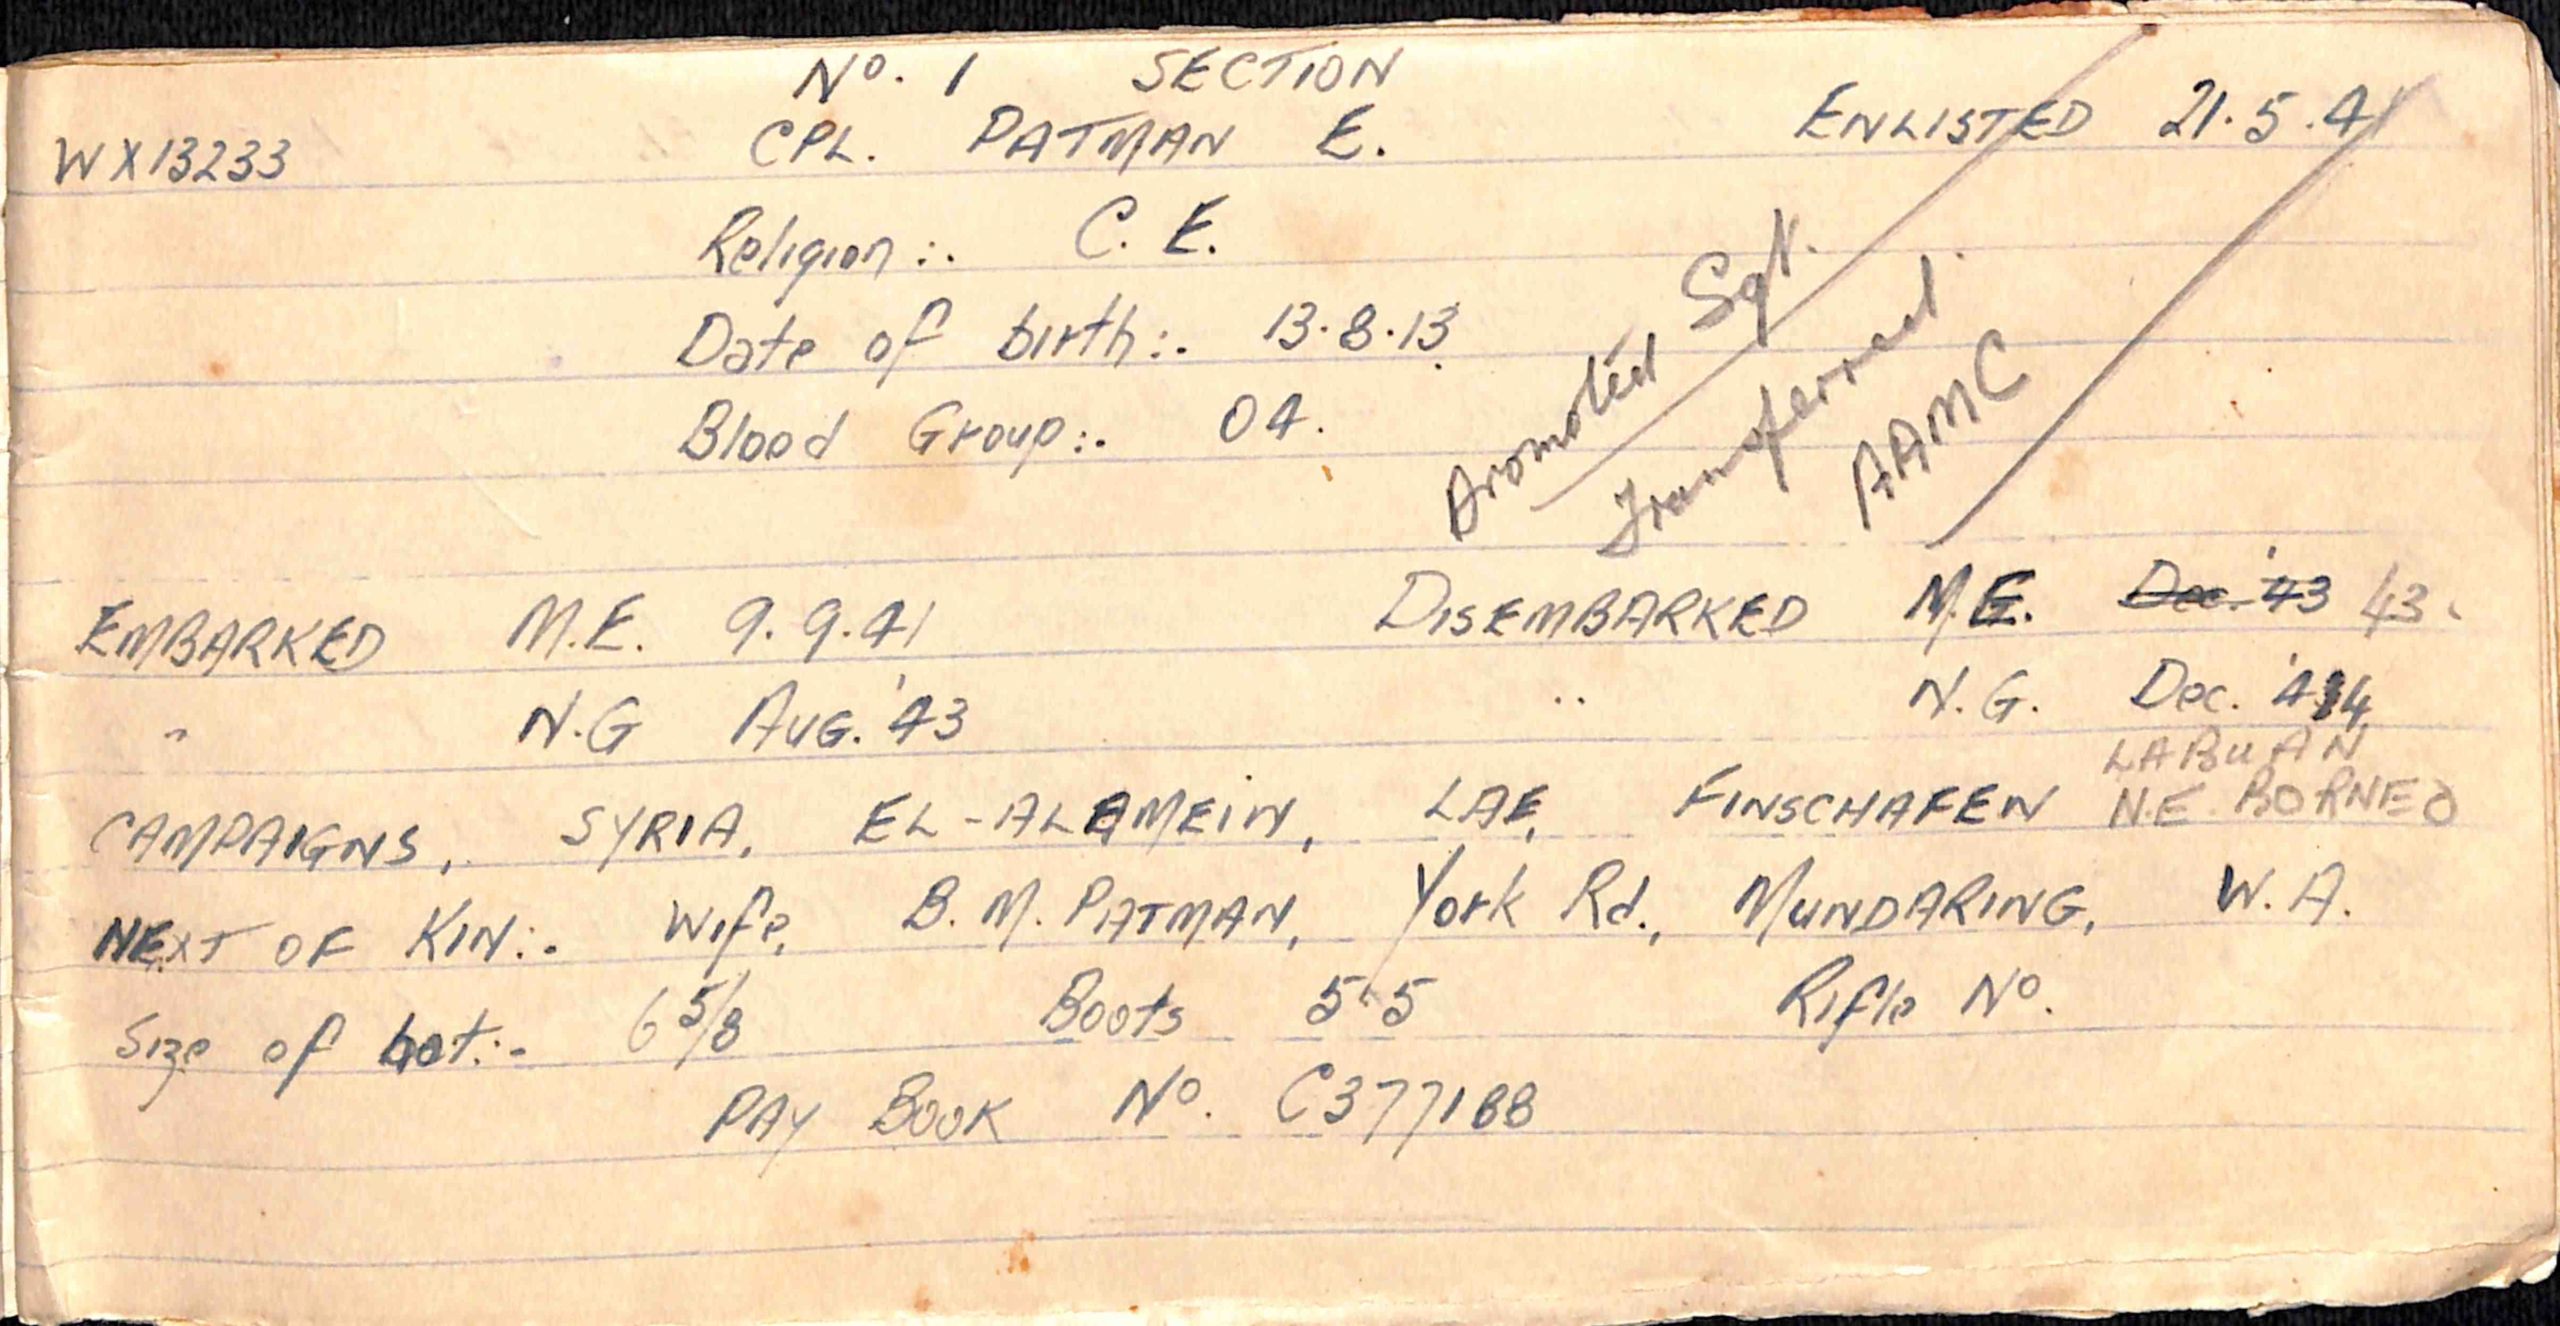 No. 1 SECTION
WX13233 CPL. PATMAN E. ENLISTED 21.5.41
Religion:. C. E.
Date of birth:. 13.8.13
Blood Group:. O4.
Promoted Sgt.
Transferred
AAMC
EMBARKED M.E. 9.9.41 DISEMBARKED M.E. Dec. '43 43.
" N.G AUG. '43 " N.G. Dec. '44
LABUAN
CAMPAIGNS, SYRIA, EL-ALAMEIN, LAE, FINSCHAFEN N.E. BORNEO
NEXT OF KIN:. Wife, B. M. PATMAN, York Rd., MUNDARING, W. A.
Size of hat:- 6 5/8 Boots 5-5 Rifle No.
PAY BOOK No. C377188